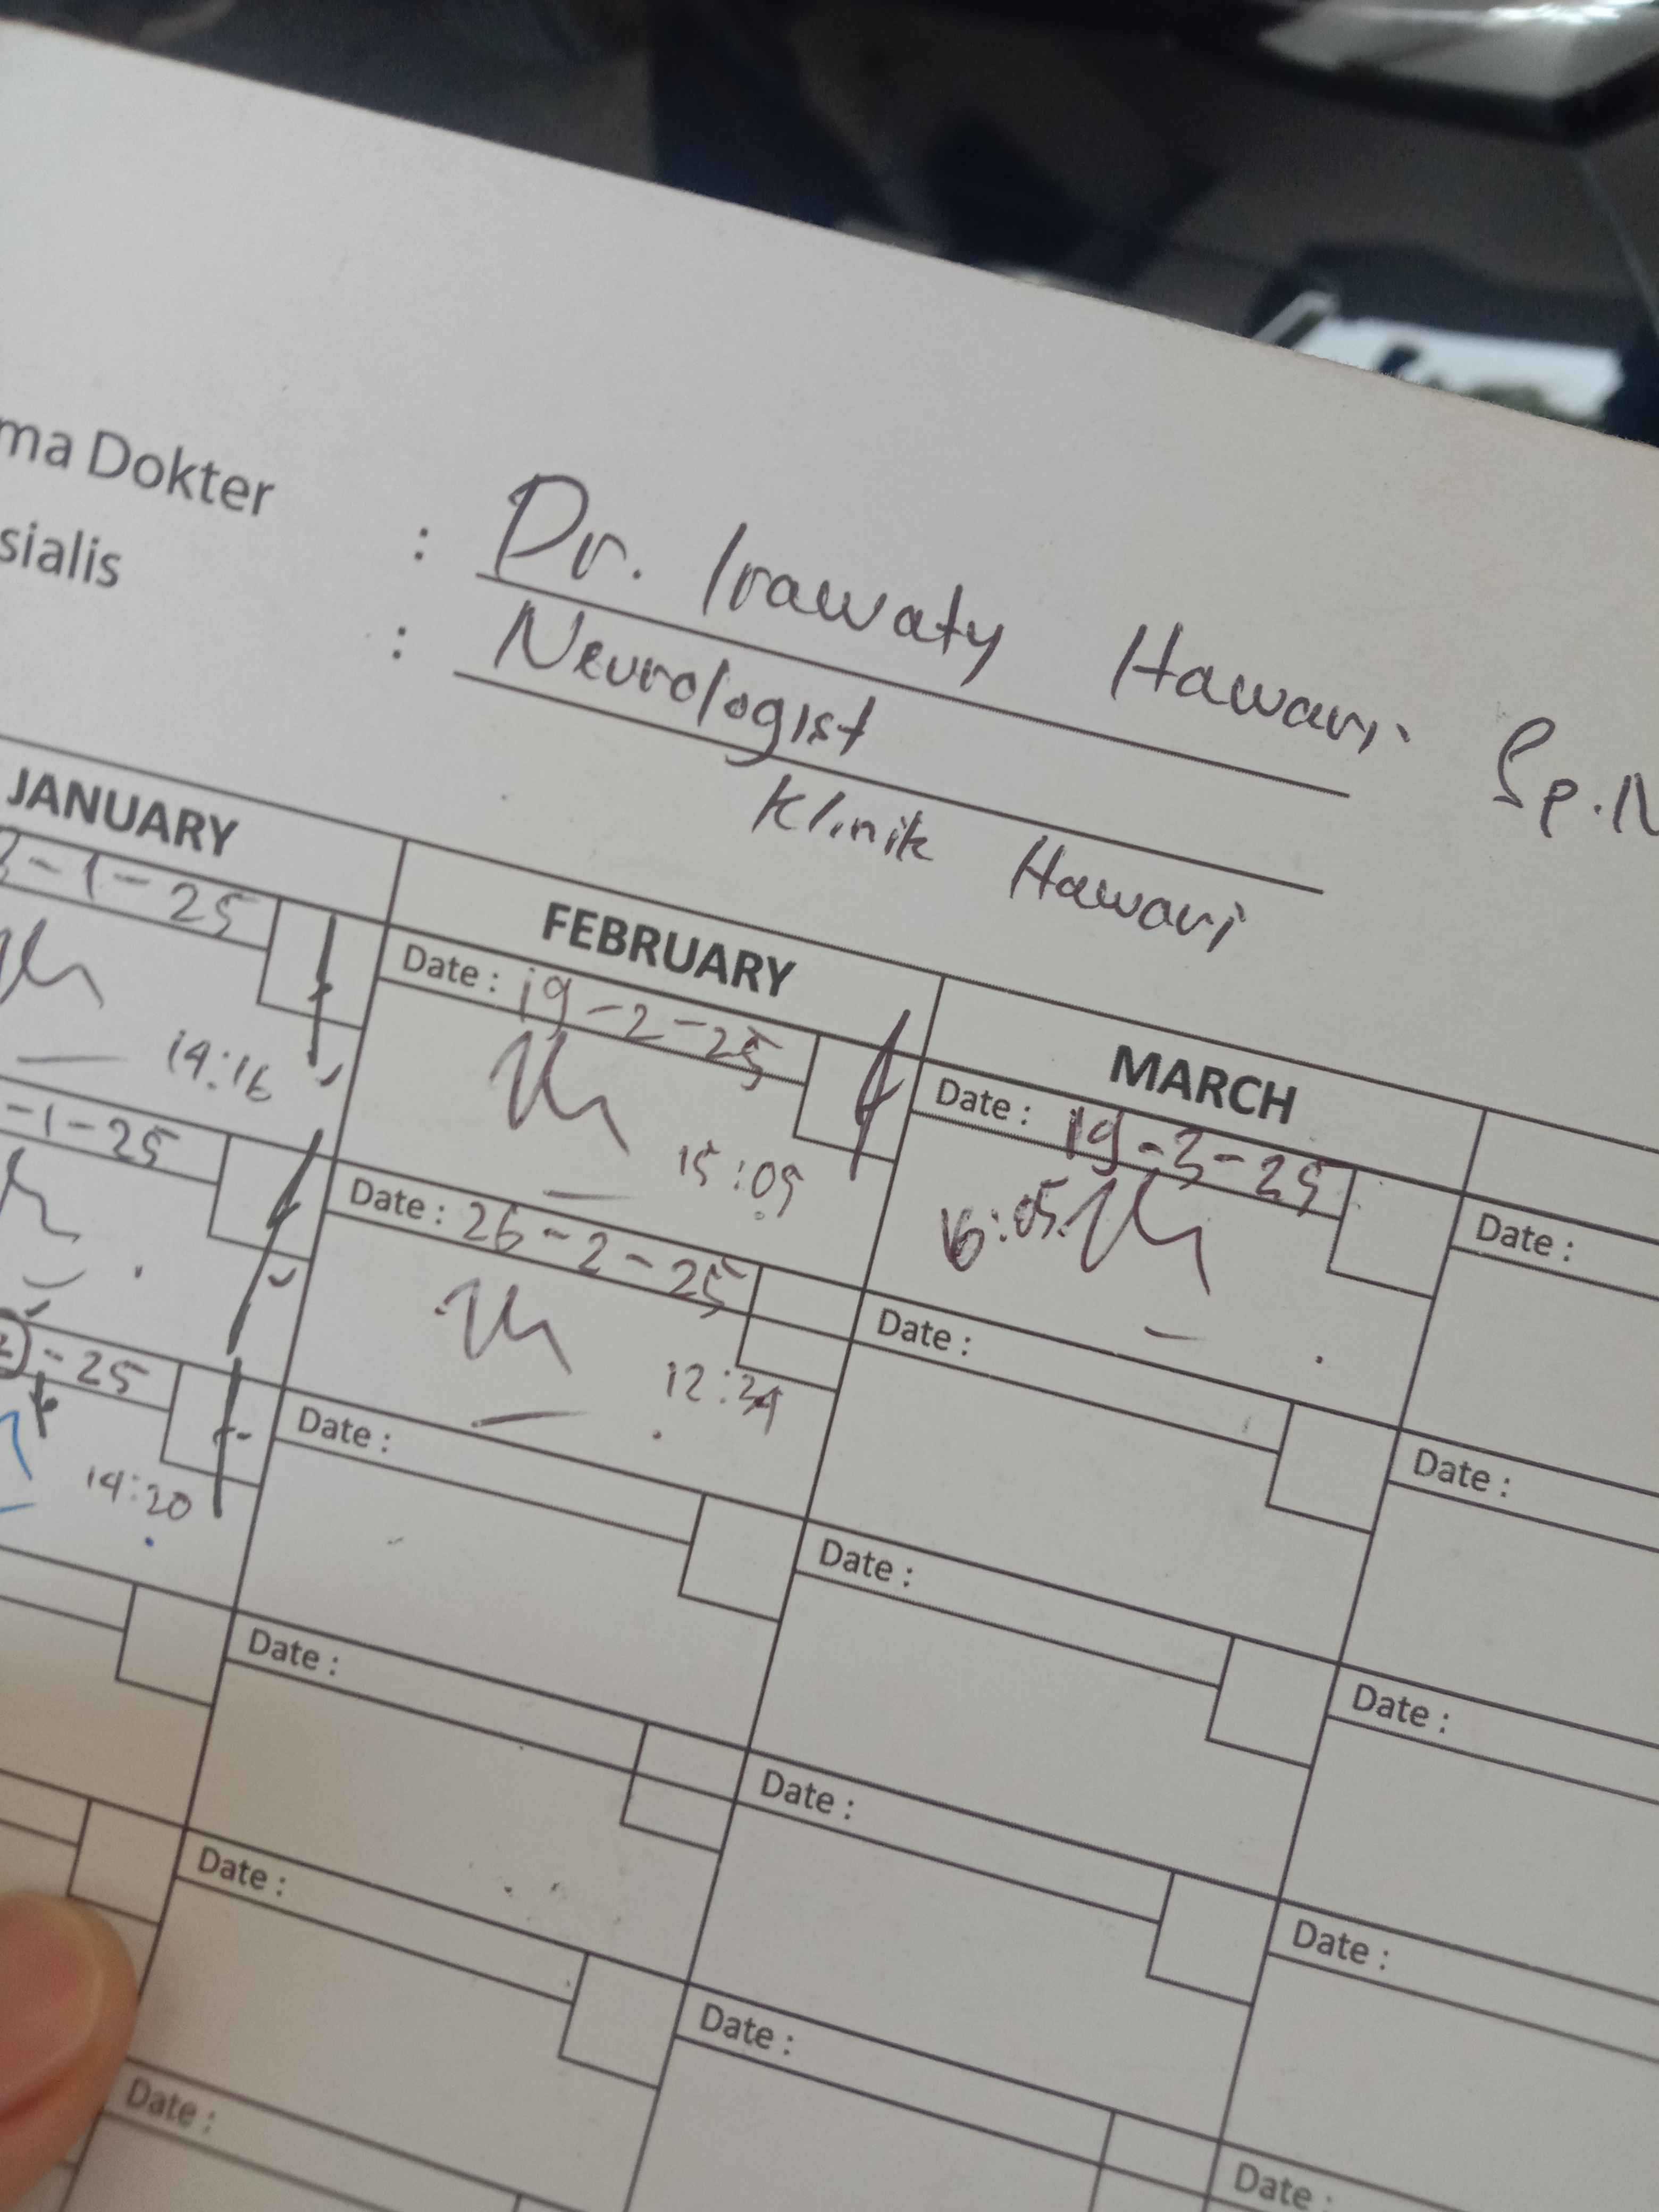 ma Dokter : Dr. Irawaty Hawari. Sp.N
sialis : Neurologist
Klinik Hawari
JANUARY
FEBRUARY
MARCH
-1-25
14:16
Date : 19-2-25
15:09
Date : 19-3-25
16:05
Date :
-1-25
Date : 26-2-25
12:34
Date :
Date :
-25
14:20
Date :
Date :
Date :
Date :
Date :
Date :
Date :
Date :
Date :
Date :